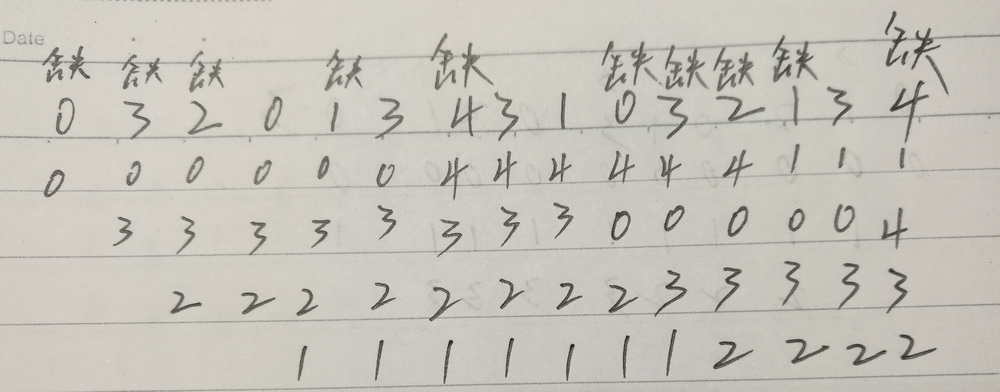 Date
缺 缺 缺 缺 缺 缺 缺 缺 缺 缺
0 3 2 0 1 3 4 3 1 0 3 2 1 3 4
0 0 0 0 0 0 4 4 4 4 4 4 1 1 1
3 3 3 3 3 3 3 3 0 0 0 0 0 4
2 2 2 2 2 2 2 2 3 3 3 3 3
1 1 1 1 1 1 1 2 2 2 2